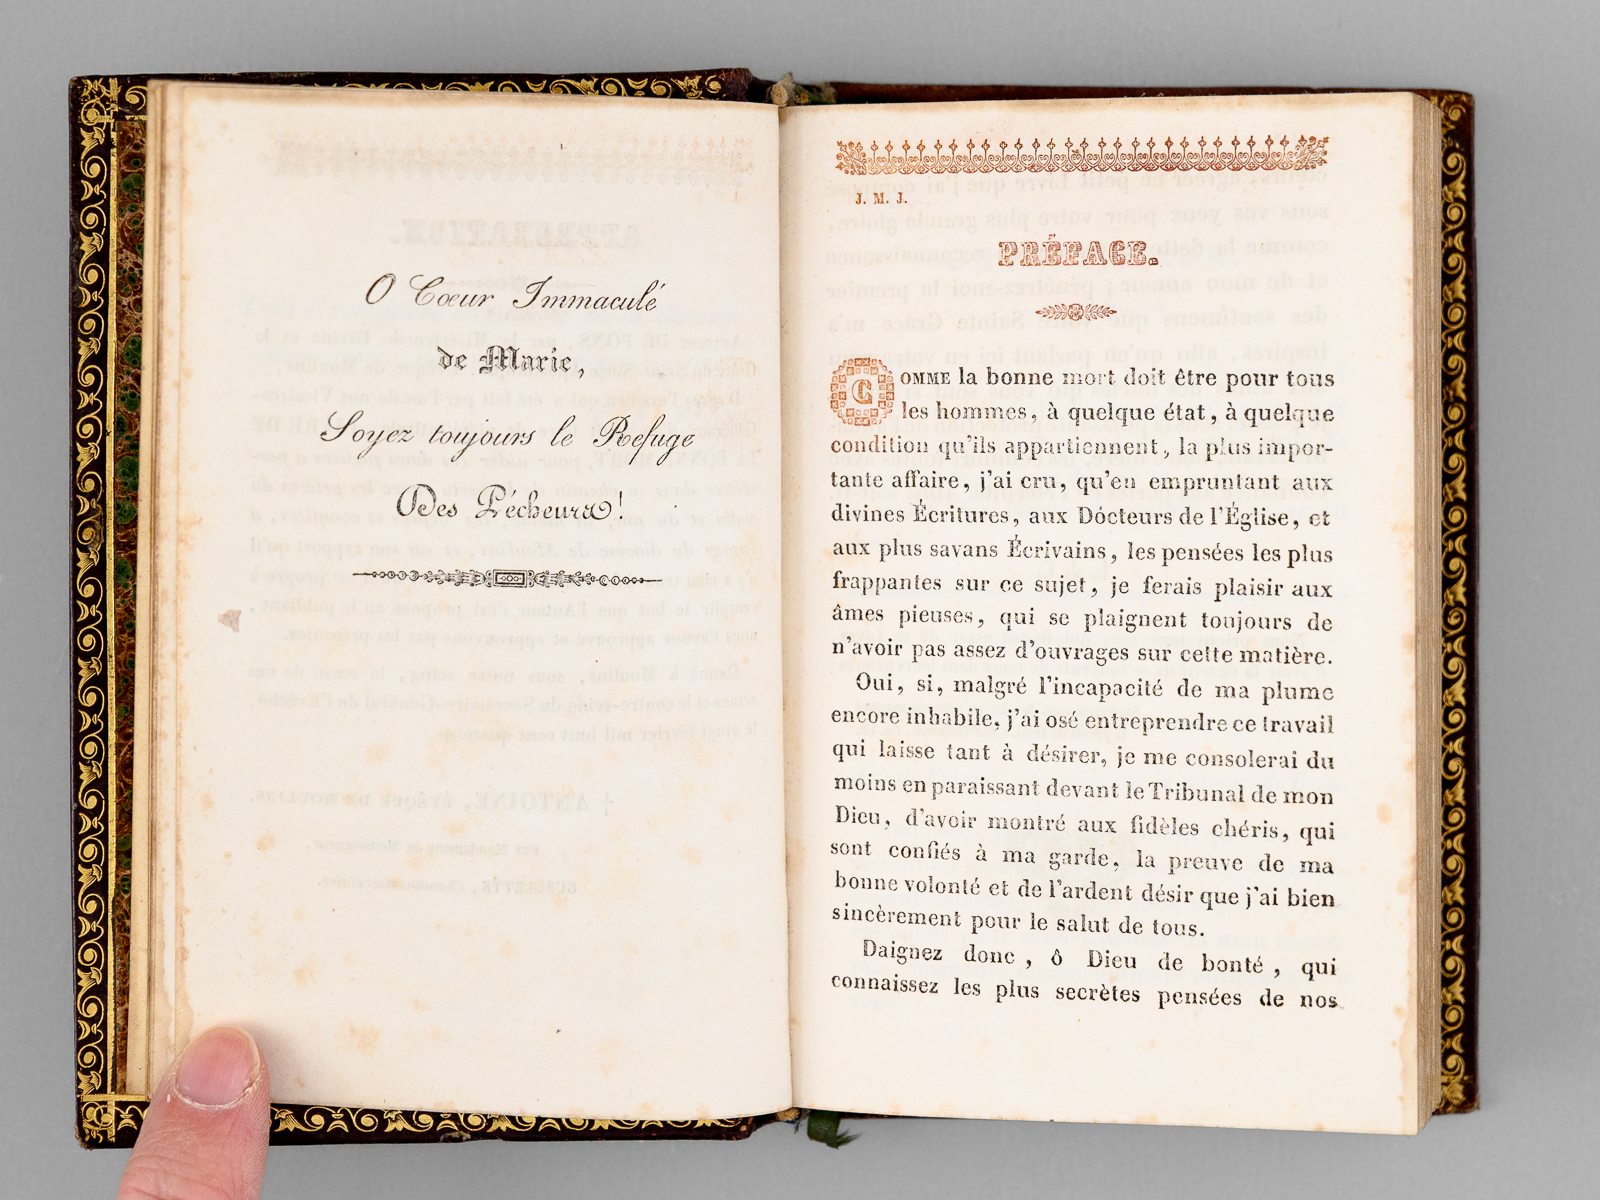 O Coeur Immaculé
de Marie,
Soyez toujours le Refuge
Des Pécheurs!
J. M. J.
PRÉFACE.
COMME la bonne mort doit être pour tous
les hommes, à quelque état, à quelque
condition qu'ils appartiennent, la plus impor-
tante affaire, j'ai cru, qu'en empruntant aux
divines Écritures, aux Docteurs de l'Église, et
aux plus savans Écrivains, les pensées les plus
frappantes sur ce sujet, je ferais plaisir aux
âmes pieuses, qui se plaignent toujours de
n'avoir pas assez d'ouvrages sur cette matière.
Oui, si, malgré l'incapacité de ma plume
encore inhabile, j'ai osé entreprendre ce travail
qui laisse tant à désirer, je me consolerai du
moins en paraissant devant le Tribunal de mon
Dieu, d'avoir montré aux fidèles chéris, qui
sont confiés à ma garde, la preuve de ma
bonne volonté et de l'ardent désir que j'ai bien
sincèrement pour le salut de tous.
Daignez donc, ô Dieu de bonté, qui
connaissez les plus secrètes pensées de nos